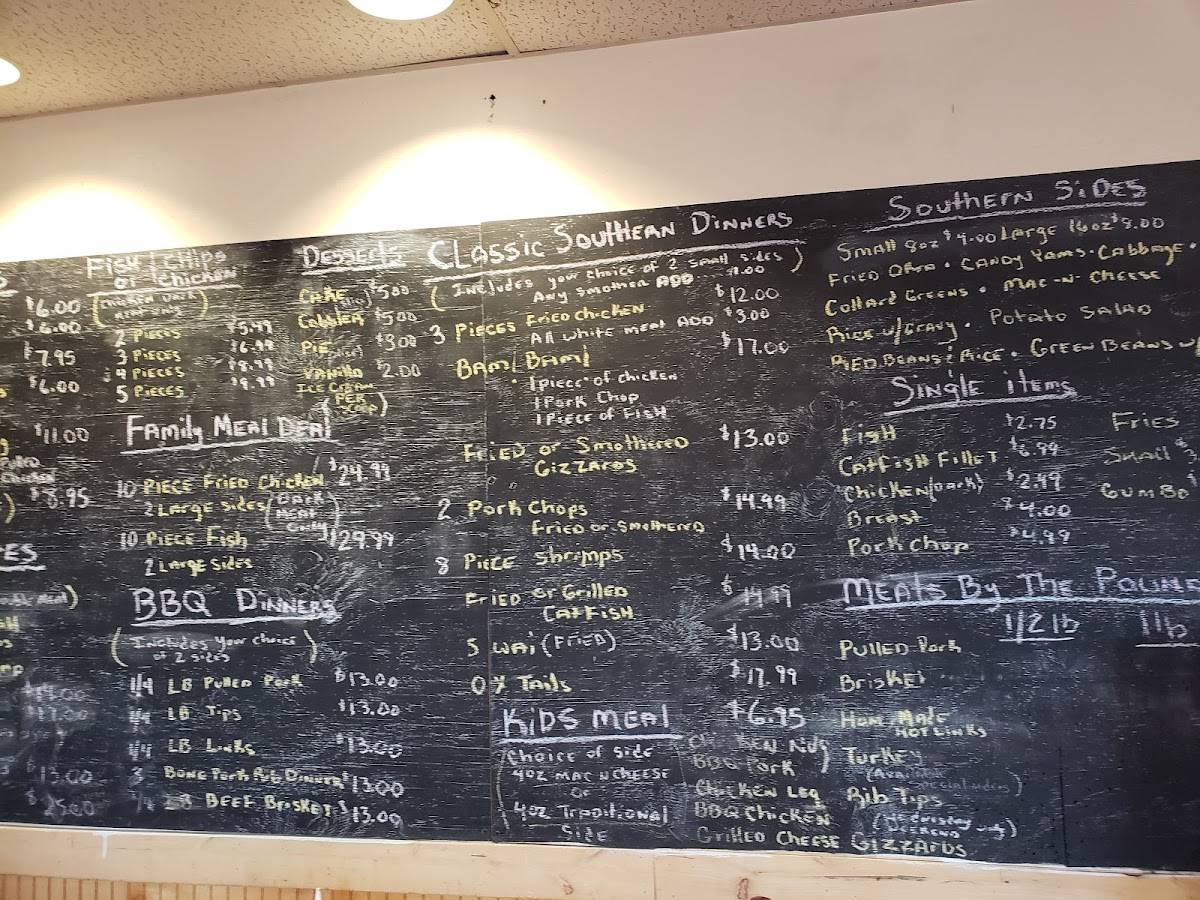 $6.00
$6.00
$7.95
$6.00
$11.00
Chicken
$8.95
$14.00
$13.00
Fish & Chips
or Chicken
(Chicken Dark
Meat Only)
2 Pieces $5.49
3 Pieces $6.99
4 Pieces $8.99
5 Pieces $9.99
Desserts
Cake $5.00
Cobbler $5.00
Pie $3.00
Vanilla $2.00
Ice Cream
(Per
Scoop)
Family Meal Deal
10 Piece Fried Chicken $24.99
2 Large Sides (Dark
Meat
Only)
10 Piece Fish $29.99
2 Large Sides
BBQ Dinners
(Includes your choice
of 2 sides)
1/4 LB Pulled Pork $13.00
LB Tips $13.00
1/4 LB Links $13.00
3 Bone Pork Rib Dinner $13.00
LB Beef Brisket $13.00
Classic Southern Dinners
(Includes your choice of 2 small sides)
Any smother ADD 1.00
3 Pieces Fried Chicken $12.00
All white meat ADD $3.00
Bam! Bam! $17.00
• 1 piece of chicken
1 Pork Chop
1 Piece of Fish
Fried or Smothered $13.00
Gizzards
2 Pork Chops $14.99
Fried or Smothered
8 Piece Shrimps $14.00
Fried or Grilled $14.99
Catfish
5 Wai (Fried) $13.00
Ox Tails $17.99
Kids Meal $6.95
Choice of side
4oz Mac n Cheese
or
4oz Traditional
Side
Chicken Nug
BBQ Pork
Chicken Leg
BBQ Chicken
Grilled Cheese
Southern Sides
Small 8oz $4.00 Large 16oz $8.00
Fried Okra • Candy Yams • Cabbage •
Collard Greens • Mac-N-Cheese
Rice w/Gravy • Potato Salad
Red Beans & Rice • Green Beans w/
Single items
Fish $2.75
Catfish Fillet $6.99
Chicken (Dark) $2.49
Breast $4.00
Pork Chop $4.99
Fries
Small $3
Gumbo $
Meats By The Pound
1/2 lb 1 lb
Pulled Pork
Brisket
Home Made
Hot Links
Turkey
(Available
Rib Tips
(Wednesday
Weekend only)
Gizzards